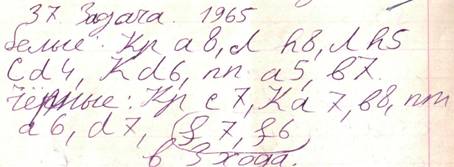 37 Задача. 1965
белые: Кр a8, Л h8, Л h5
С d4, К d6, пп a5, b7.
чёрные: Кр c7, К a7, b8, пп
a6, d7, f7, f6
в 3 хода.